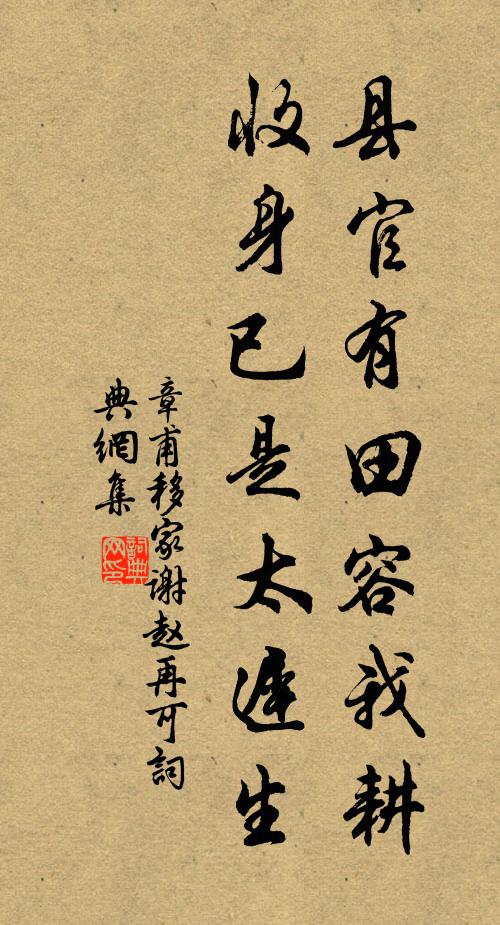 县官有田容我耕
收身已是太遅生
章甫移家谢赵再可詞
典網集
詞典
网印